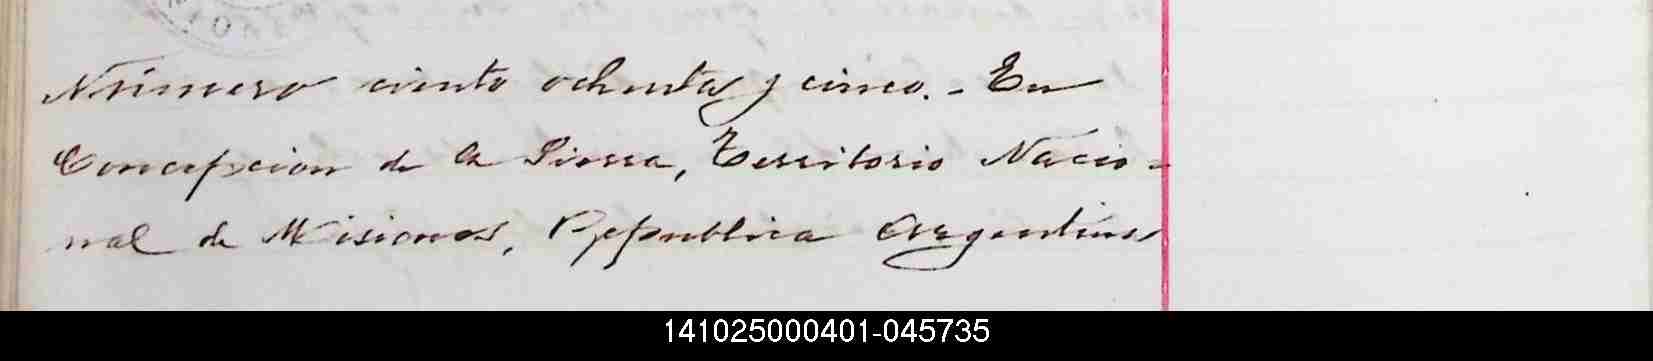 Número ciento ochenta y cinco. - En
Concepcion de la Sierra, Territorio Nacio-
nal de Misiones, Republica Argentina
141025000401-045735